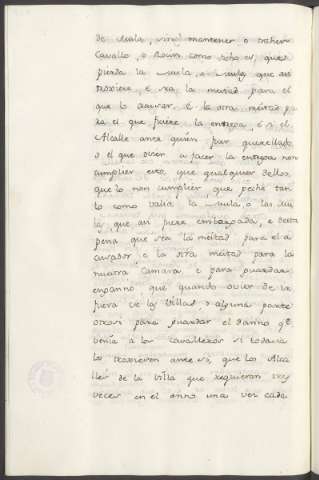 de Mula, sin mantener o traher
Cavallo, o Rocin como dicho es, que
pierda la Mula, o Mulas que an
troxiere, e sea la meitad para el
que lo acusar, e la otra meitad pa
ra el que ficiere la entrega, e si el
Alcalle ante quien fue querellado
o el que ovier a facer la entrega non
cumplier esto, que qualquier dellos
que lo non cumplier, que peche tan
to como valia la Mula, o las Mu
las que asi fuere embargada, e desta
pena que sea la meitad para el a
cusador e la otra meitad para la
nuestra Camara, e para guardar
engaño, que quando ovier de ir
fuera de la Villa a alguna parte
otrosi para guardar el danno qe
venia a los cavalleros si todavia
los troxiesen ante si, que los Alca
lles de la Villa que requieran tres
veces en el anno una vez cada